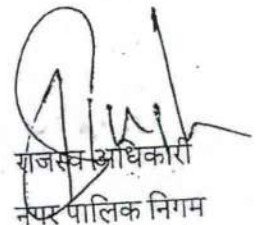 राजस्व अधिकारी
नगर पालिक निगम